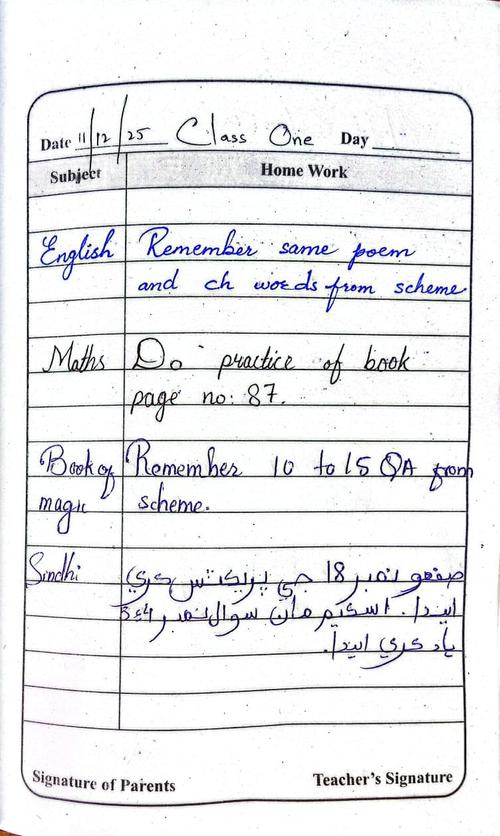 Date 11/12/25 Class One Day
Subject Home Work
English Remember same poem
and ch words from scheme
Maths Do practice of book
page no: 87.
Book of Remember 10 to 15 QA from
magic scheme.
Sindhi صفحو نمبر 18 جي پريڪٽس ڪري
ايندا. اسڪيم مان سوال نمبر 4 ۽ 5
ياد ڪري ايندا.
Signature of Parents Teacher's Signature